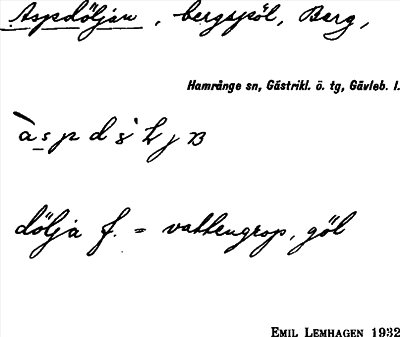 Aspdöljan, bergspöl, Berg,
Hamrånge sn, Gästrikl. ö. tg, Gävleb. l.
dölja f. = vattengrop, göl
EMIL LEMHAGEN 1932